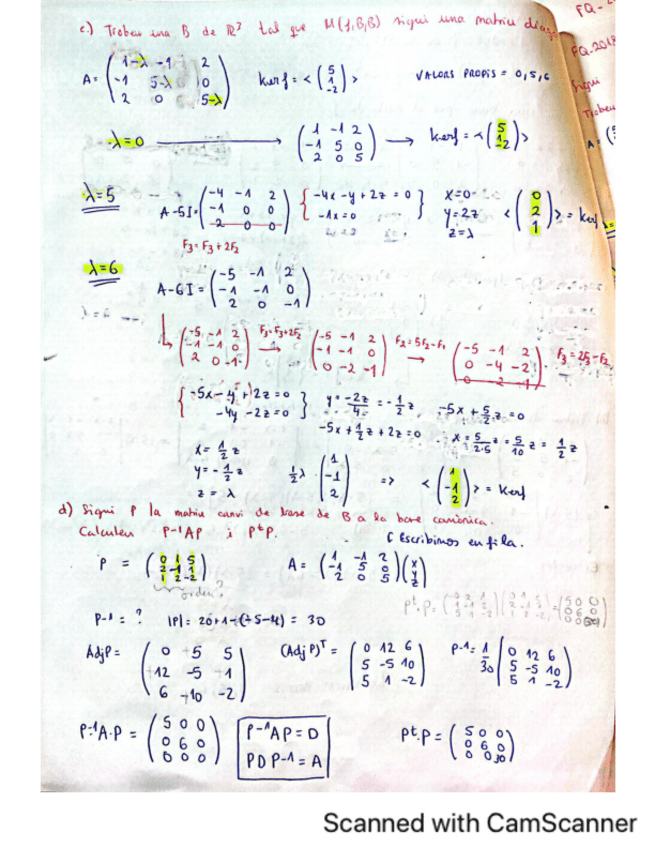 c.) Trobeu una B de R³ tal que M(f,B,B) sigui una matriu diag
FQ-2
FQ-2018
Sigui
Trobeu
A = ( 1-λ -1 2 / -1 5-λ 0 / 2 0 5-λ ) kerf = < ( 5 / 1 / -2 ) > VALORS PROPIS = 0,5,6
λ=0 → ( 1 -1 2 / -1 5 0 / 2 0 5 ) → kerf = < ( 5 / 1 / -2 ) >
λ=5 A-5I = ( -4 -1 2 / -1 0 0 / 2 0 0 ) { -4x-y+2z=0 / -1x=0 } x=0 y=2z z=λ < ( 0 / 2 / 1 ) > = kerf
F3=F3+2F2
λ=6 A-6I = ( -5 -1 2 / -1 -1 0 / 2 0 -1 )
( -5 -1 2 / -1 -1 0 / 2 0 -1 ) F3=F3+2F2 → ( -5 -1 2 / -1 -1 0 / 0 -2 -1 ) F2=5F2-F1 → ( -5 -1 2 / 0 -4 -2 / 0 -2 -1 ) F3=2F3-F2
{ -5x-y+2z=0 / -4y-2z=0 } y=-2z/4=-1/2 z -5x+5/2 z=0
-5x+1/2 z+2z=0 x=5/2·5 z=5/10 z=1/2 z
x=1/2 z y=-1/2 z z=λ 1/2 λ · ( 1 / -1 / 2 ) => < ( 1 / -1 / 2 ) > = Kerf
d) Sigui P la matriu canvi de base de B a la base canònica.
Calculeu P-1AP i PtP. Escribimos en fila.
P = ( 0 1 5 / 2 -1 1 / 1 2 -2 ) A = ( 1 -1 2 / -1 5 0 / 2 0 5 ) ( x / y / z )
orden?
P-1 = ? |P| = 20+1-(-5-4) = 30
AdjP = ( 0 +5 5 / +12 -5 +1 / 6 +10 -2 ) (Adj P)T = ( 0 12 6 / 5 -5 10 / 5 1 -2 ) P-1 = 1/30 ( 0 12 6 / 5 -5 10 / 5 1 -2 )
P-1A·P = ( 5 0 0 / 0 6 0 / 0 0 0 ) P-1AP = D PDP-1 = A Pt.P = ( 5 0 0 / 0 6 0 / 0 0 30 )
Scanned with CamScanner